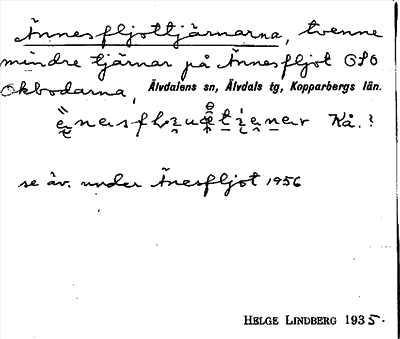 Ännesfljottjärnarna, tvenne
mindre tjärnar på Ännesfljot OSO
Okbodarna, Älvdalens sn, Älvdals tg, Kopparbergs län.
Kå.?
se äv. under Änesfljot 1956
HELGE LINDBERG 1935.